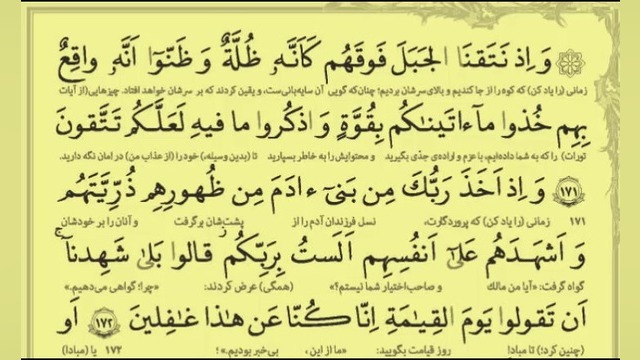 وَ اِذ نَتَقنَا الجَبَلَ فَوقَهُم كَاَنَّهٗ ظُلَّةٌ وَ ظَنّوٓا اَنَّهٗ واقِعٌ
زمانی (را یاد کن) که کوه را از جا کندیم و بالای سرشان بردیم؛ چنان‌که گویی آن سایه‌بانی‌ست، و یقین کردند که بر سرشان خواهد افتاد. چیزهایی(از آیات
بِهِم خُذوا مآ ءاتَینٰكُم بِقُوَّةٍ وَ اذكُروا ما فیهِ لَعَلَّكُم تَتَّقونَ
تورات) را که به شما داده‌ایم، با عزم و اراده‌ی جدّی بگیرید و محتوایش را به خاطر بسپارید تا (بدین وسیله،) خود را (از عذاب من) در امان نگه دارید.
۱۷۱ وَ اِذ اَخَذَ رَبُّكَ مِن بَنیٓ ءادَمَ مِن ظُهورِهِم ذُرِّیَّتَهُم
۱۷۱ زمانی (را یاد کن) که پروردگارت، نسل فرزندان آدم را از پشت‌شان برگرفت و آنان را بر خودشان
وَ اَشهَدَهُم عَلیٰٓ اَنفُسِهِم اَلَستُ بِرَبِّكُم ۖ قالوا بَلیٰ شَهِدنآ ۚ
گواه گرفت: «آیا من مالك و صاحب‌اختیار شما نیستم؟» (همگی) عرض کردند: «چرا؛ گواهی می‌دهیم.»
اَن تَقولوا یَومَ القِیٰمَةِ اِنّا كُنّا عَن هٰذا غٰفِلینَ ۱۷۲ اَو
(چنین کرد؛) تا مبادا روز قیامت بگویید: «ما از این، بی‌خبر بودیم.»؛ ۱۷۲ یا (مبادا)